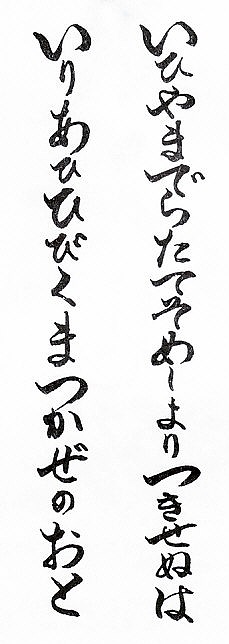 いひやまでらたてそめしよりつきせぬは
いりあひひびくまつかぜのおと